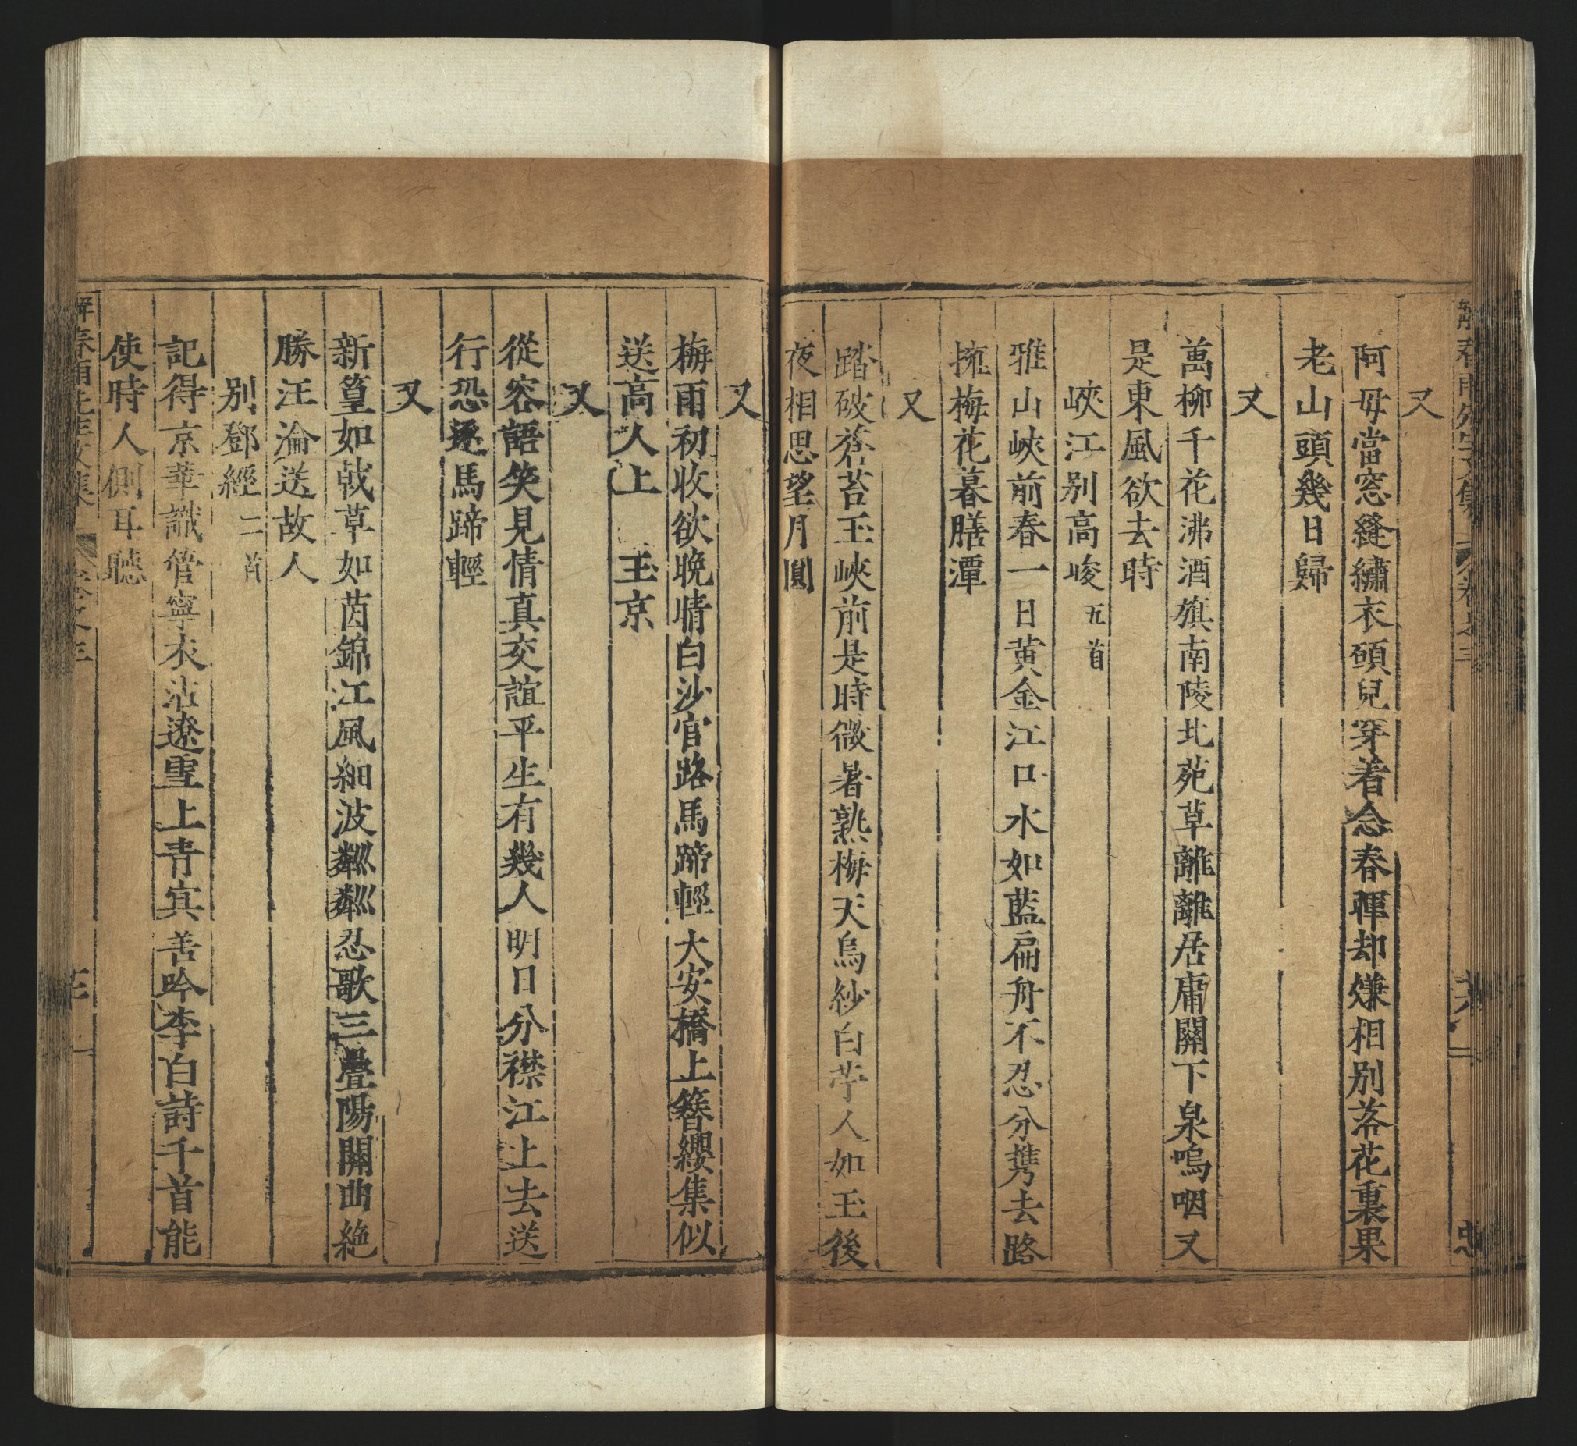 又
阿母當窓縫繡衣頭兒穿着念春暉却嫌相別落花裏果
老山頭幾日歸
又
萬柳千花沸酒旗南陵北苑草離離居庸關下泉嗚咽又
是東風欲去時
峽江别高峻五首
雅山峽前春一日黄金江口水如藍扁舟不忍分携去路
擁梅花暮膳潭
又
踏破蒼苔玉峽前是時微暑熟梅天烏紗白苧人如玉後
夜相思望月圓
又
梅雨初收欲晚晴白沙官路馬蹄輕大安橋上簪纓集似
送高人上玉京
又
從容語笑見情真交誼平生有幾人明日分襟江上去送
行恐逐馬蹄輕
又
新篁如戟草如茵錦江風細波粼粼忍歌三疊陽關曲絶
勝汪淪送故人
別鄧經二首
記得京華識管寧衣沾遼雪上青冥善吟李白詩千首能
使時人側耳聽